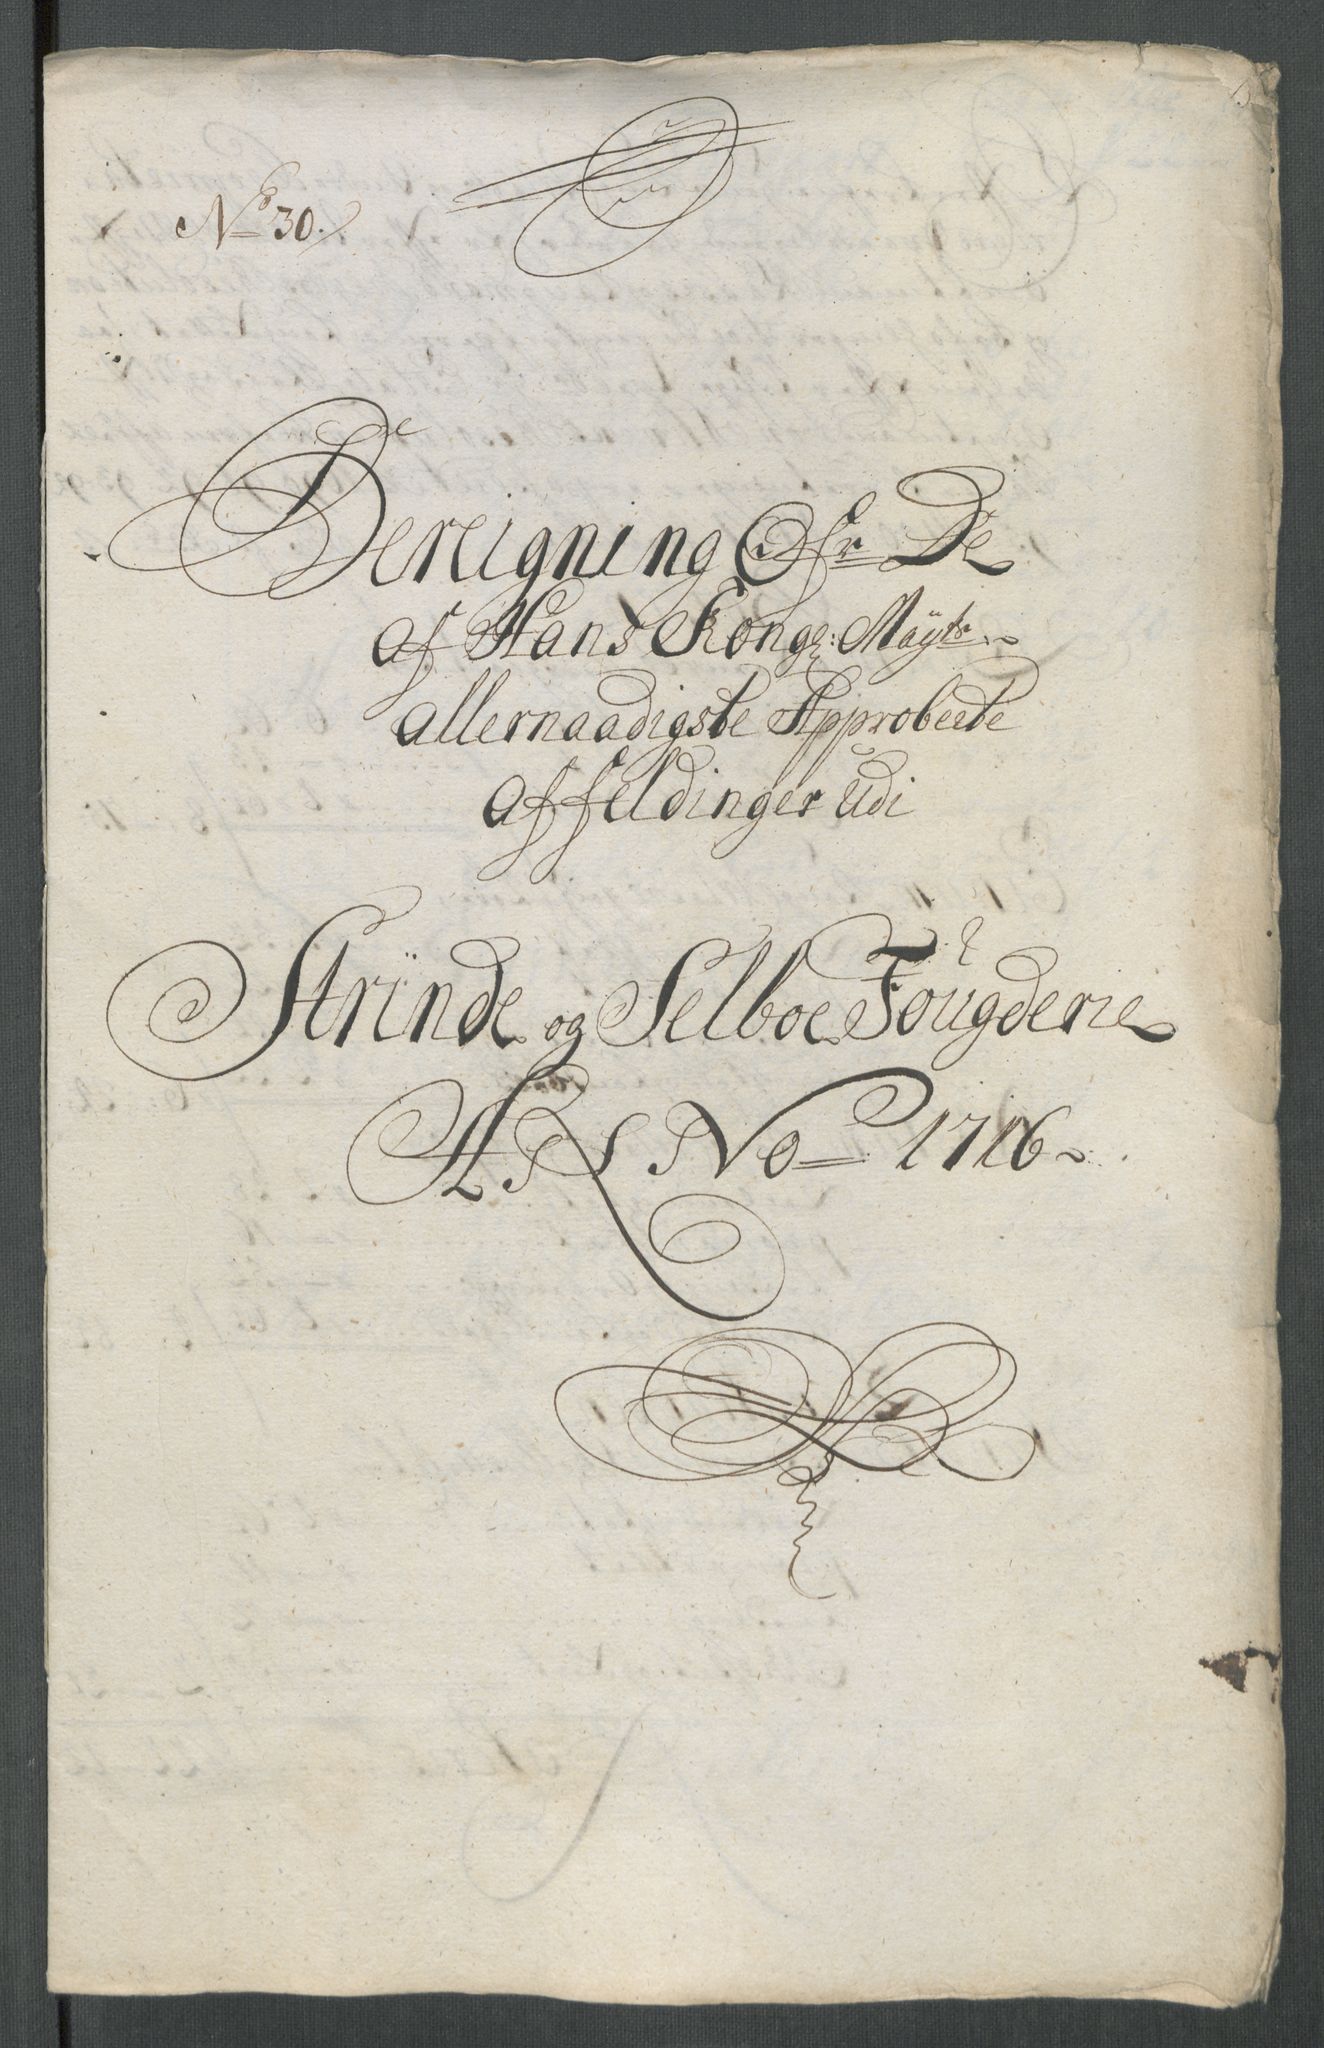 No 30.
Bereigning Ofr De
af Hans Kongl: Mayts
allernaadigste Approberte
affeldinger udi
Strinde og Selboe Fougderie
Pro Anno 1716